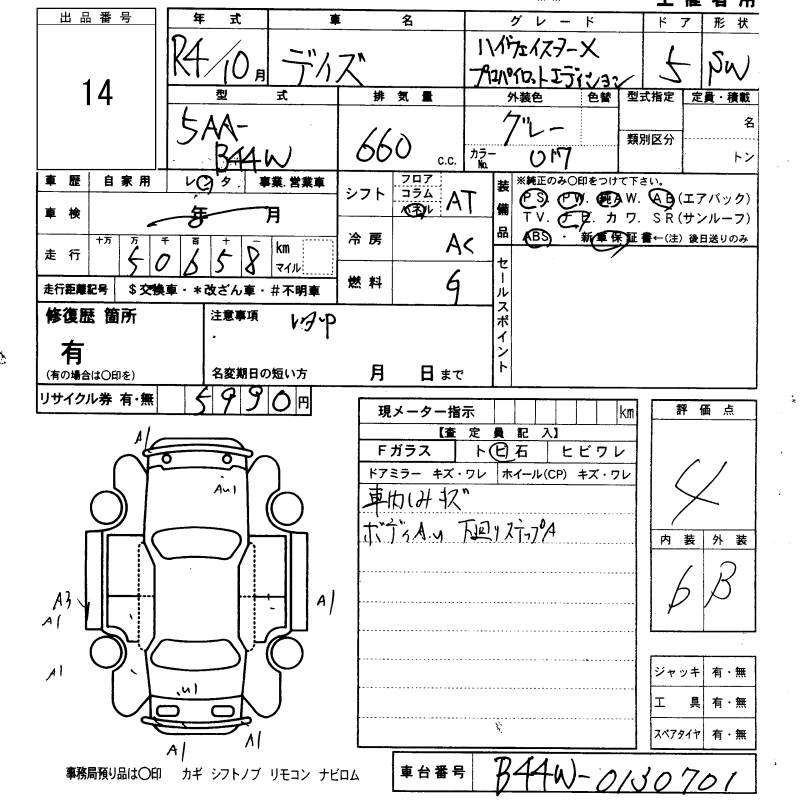 出品番号
14
年 式
R4/10月
車 名
デイズ
グレード
ハイウェイスターX
プロパイロットエディション
ドア
5
形状
SW
型 式
5AA-
B44W
排気量
660 c.c.
外装色
グレー
色替
カラーNo.
型式指定
類別区分
定員・積載
名
トン
車歴 自家用 レンタ 事業.営業車
車検 年 月
走行 十万 万 千 百 十 一
50658 km マイル
走行距離記号 $交換車・*改ざん車・#不明車
シフト フロア コラム パネル AT
冷房 AC
燃料 G
装備品
※純正のみ〇印をつけて下さい。
PS. PW. 純AW. AB(エアバック)
TV. ナビ. カワ. SR(サンルーフ)
ABS ・ 新車保証書←(注) 後日送りのみ
セールスポイント
修復歴 箇所
有
(有の場合は〇印を)
注意事項
名変期日の短い方 月 日まで
リサイクル券 有・無 5990円
現メーター指示 km
【査定員記入】
Fガラス ト ビ 石 ヒビワレ
ドアミラー キズ・ワレ ホイール(CP) キズ・ワレ
車内しみキズ
ボディA.u 下廻りステップA
評価点
4
内装 外装
6 B
ジャッキ 有・無
工 具 有・無
スペアタイヤ 有・無
A1
Au1
A3
A1
A1
A1
.u1
A1
A1
事務局預り品は〇印 カギ シフトノブ リモコン ナビロム
車台番号 B44W-0130701